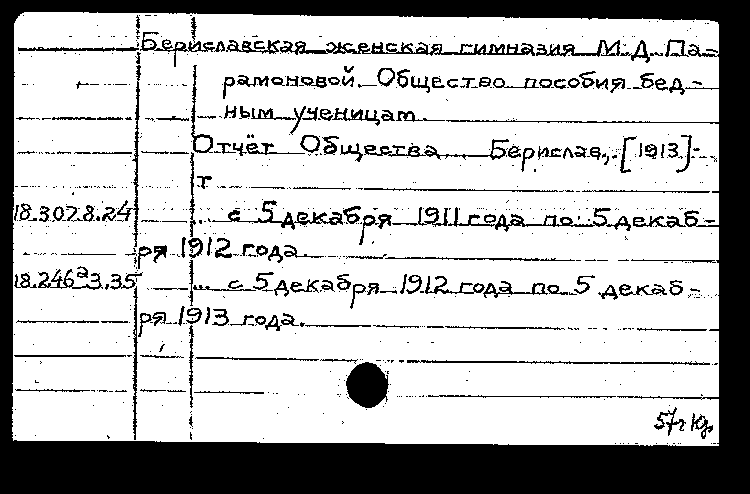 Бериславская женская гимназия М.Д. Па-
рамоновой. Общество пособия бед-
ным ученицам.
Отчёт Общества... Берислав, [1913]-
т
18.307.8.24 ... с 5 декабря 1911 года по 5 декаб-
ря 1912 года.
18.246ª3.35 ... с 5 декабря 1912 года по 5 декаб-
ря 1913 года.
57г